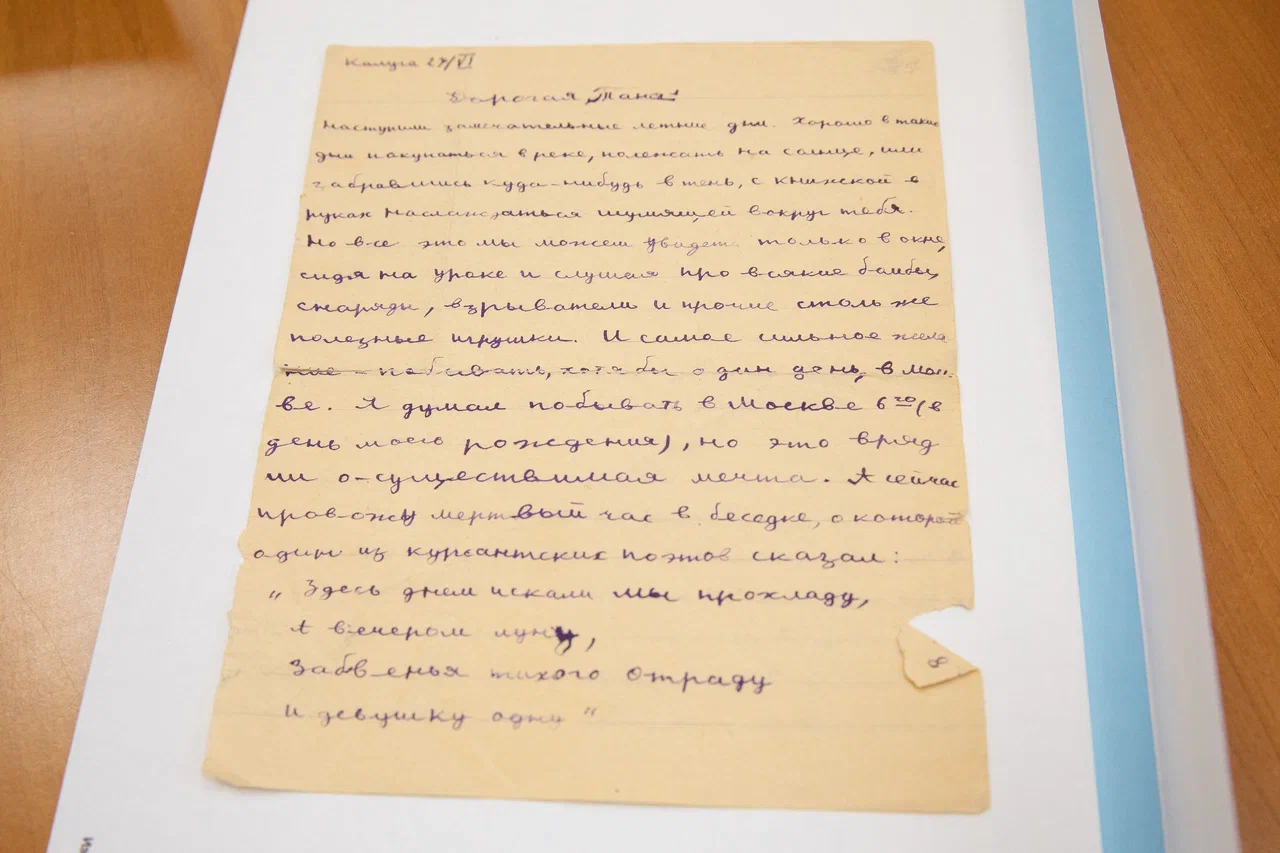 Калуга 27/VI
Дорогая Таня!
Наступили замечательные летние дни. Хорошо в такие
дни покупаться в реке, полежать на солнце, или
забравшись куда-нибудь в тень, с книжкой в
руках наслаждаться шумящей вокруг тебя.
Но все это мы можем увидеть только в окне,
сидя на уроке и слушая про всякие бомбы,
снаряды, взрыватели и прочие столь же
полезные игрушки. И самое сильное жела
ние – побывать, хотя бы один день, в Мос-
ве. Я думал побывать в Москве 6го (в
день моего рождения), но это вряд
ли о-существимая мечта. А сейчас
провожу мертвый час в беседке, о которой
один из курсантских поэтов сказал:
„Здесь днем искали мы прохладу,
А вечером луну,
Забвенья тихого отраду
И девушку одну"
8